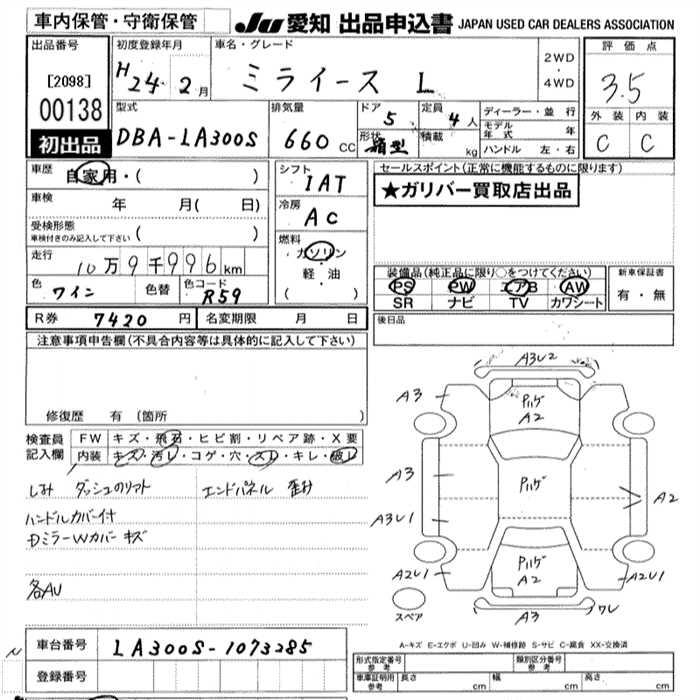 車内保管・守衛保管
JU 愛知 出品申込書 JAPAN USED CAR DEALERS ASSOCIATION
出品番号
[2098]
00138
初出品
初度登録年月
H24年2月
車名・グレード
ミライース L
2WD
・
4WD
評価点
3.5
外装 内装
C C
型式
DBA-LA300S
排気量
660 cc
ドア
5
形状
箱型
定員
4人
積載
kg
ディーラー・並行
モデル年式 年
ハンドル 左・右
車歴
自家用・( )
車検
年 月( 日)
受検形態
車検付きのみ記入して下さい ( )
走行
10万9千996km
色
ワイン
色替
色コード
R59
シフト
IAT
冷房
AC
燃料
ガソリン
・
軽・油
( )
セールスポイント(正常に機能するものに限ります)
★ガリバー買取店出品
装備品(純正品に限り○をつけてください)
PS PW エアB AW
SR ナビ TV カワシート
新車保証書
有・無
R券 7420円 名変期限 月 日
後日品
注意事項申告欄(不具合内容等は具体的に記入して下さい)
修復歴 有 (箇所 )
検査員記入欄
FW キズ・飛石・ヒビ割・リペア跡・X要
内装 キズ・汚レ・コゲ・穴・スレ・キレ・破レ
しみ ダッシュのリフト
エンドパネル 歪み
ハンドルカバー付
DミラーWカバー キズ
各AU
A3U2
A3
Pハゲ
A2
A3
Pハゲ
A2
A3U1
A2U1
Pハゲ
A2
A2U1
スペア
A3
ワレ
A-キズ E-エクボ U-凹み W-補修跡 S-サビ C-腐食 XX-交換済
車台番号 LA300S-1073285
登録番号
形式指定番号 参考
類別区分番号 参考
車庫証明用 参考
長さ cm
幅 cm
高さ cm